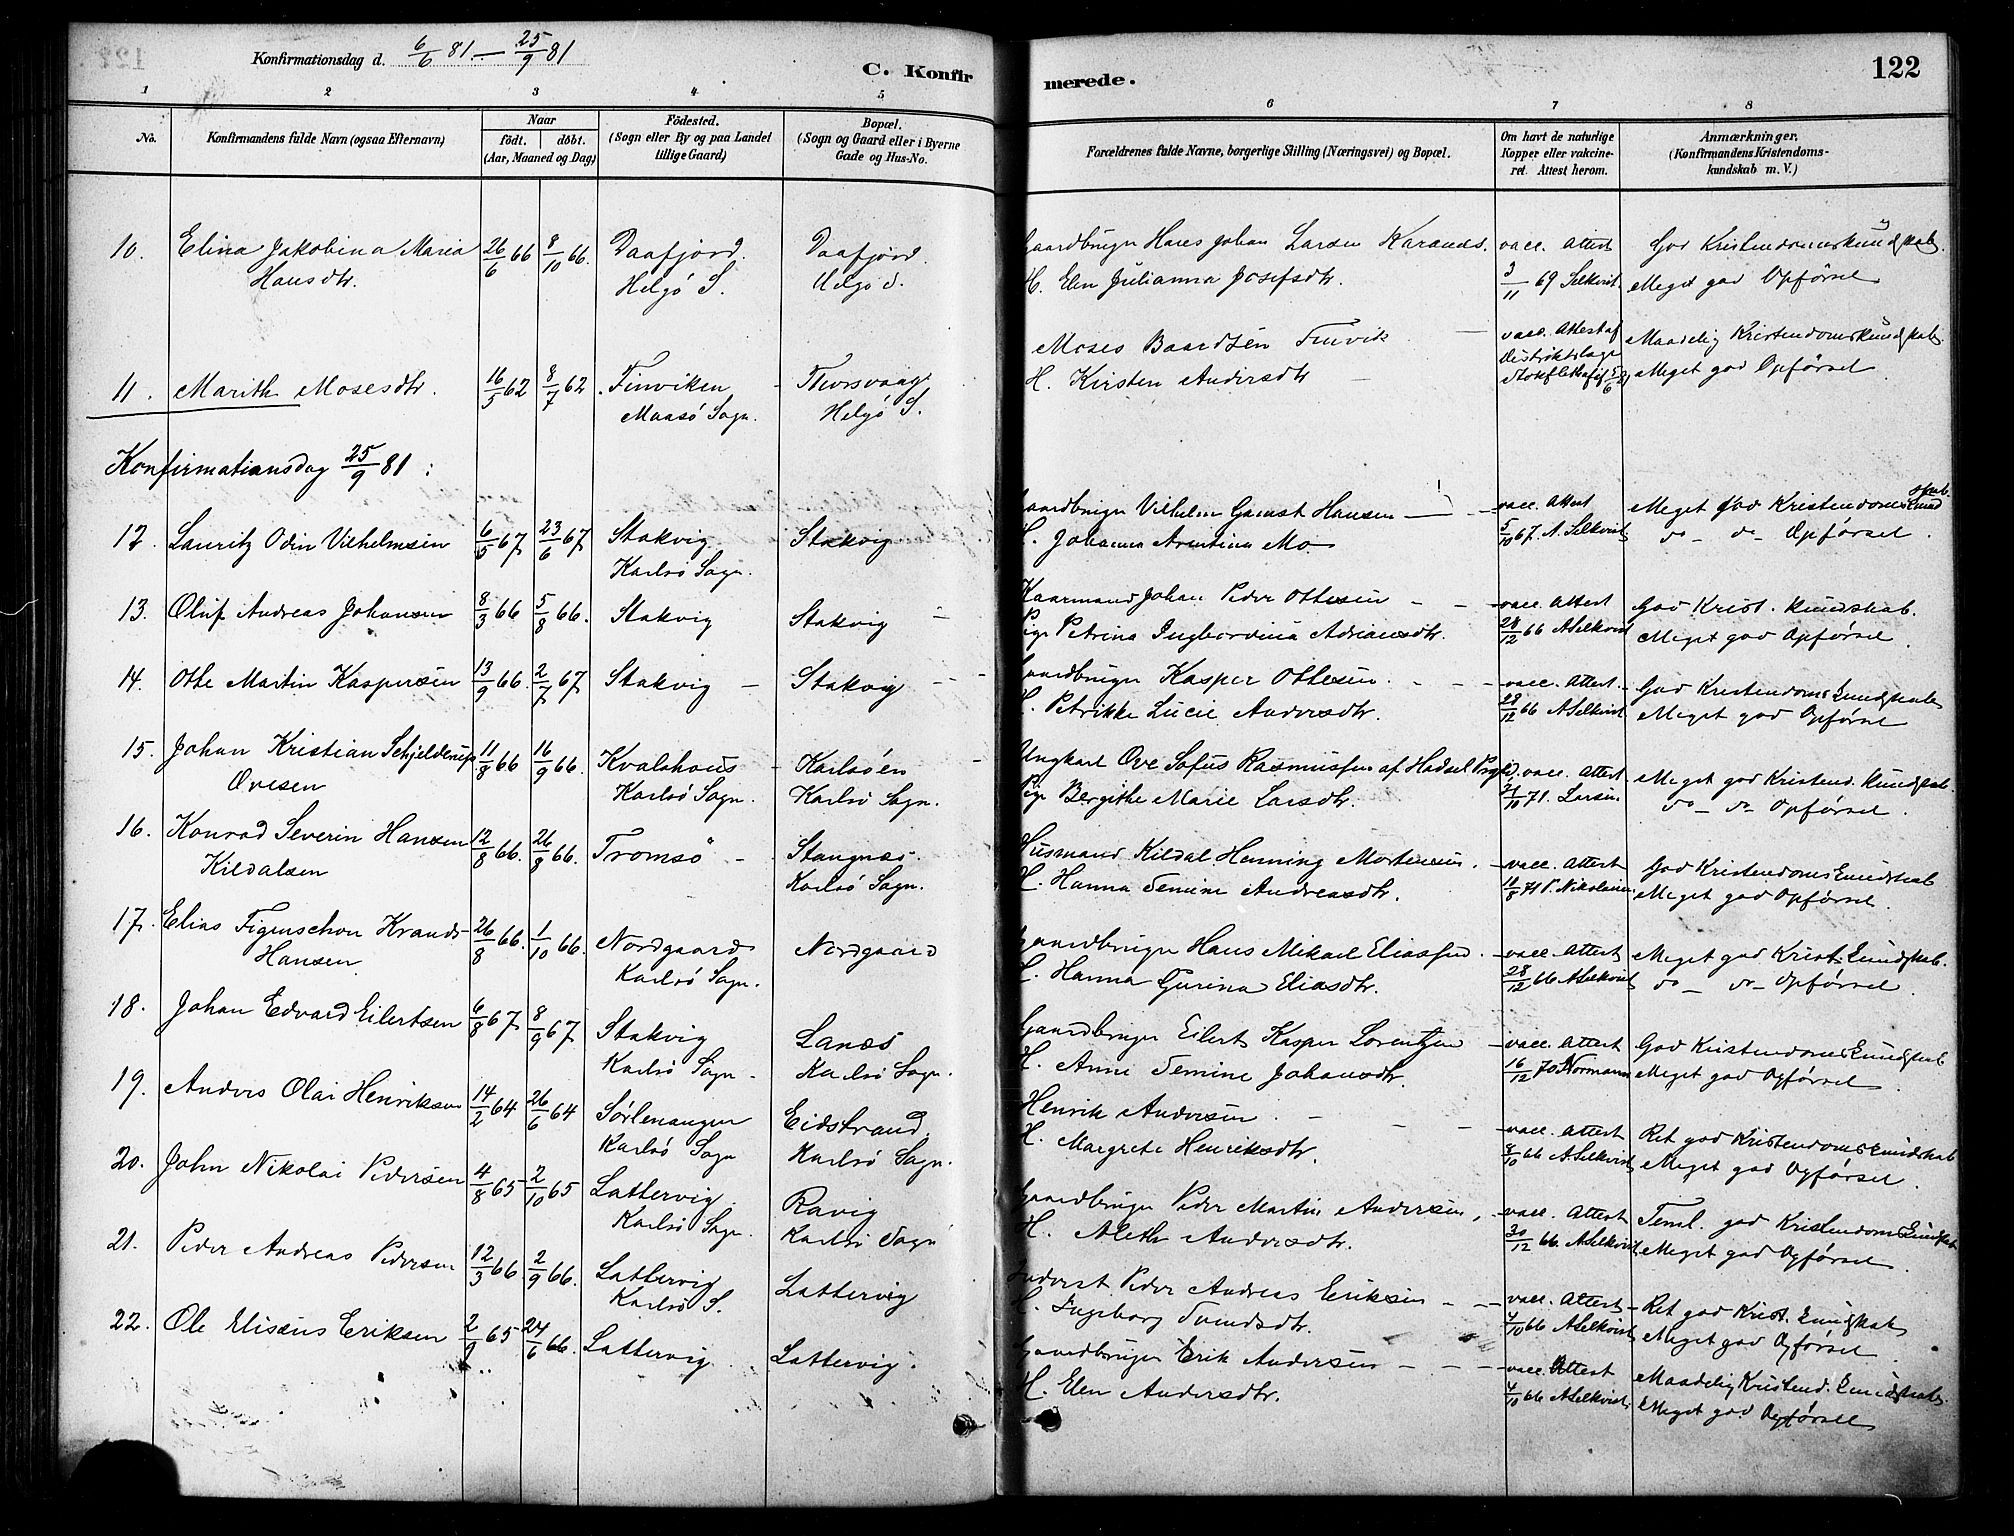 Konfirmationsdag d. 6/6 81. — 25/9 81
C. Konfirmerede.
122
1 2 3 4 5 6 7 8
No.
Konfirmandens fulde Navn (ogsaa Efternavn)
Naar
födt. döbt.
(Aar, Maaned og Dag)
Födested.
(Sogn eller By og paa Landet
tillige Gaard)
Bopæl.
(Sogn og Gaard eller i Byerne
Gade og Hus-No.
Forældrenes fulde Navne, borgerlige Stilling (Næringsvei) og Bopæl.
Om havt de naturlige
Kopper eller vakcine-
ret. Attest herom.
Anmærkninger.
(Konfirmandens Kristendoms-
kundskab m. V.)
10. Elina Jakobina Maria 26/6 66 8/10 66. Daafjord. Daafjord. Gaardbruger Hans Johan Larsen vacc. Attest God Kristendomskundskab.
Hansdtr. Helgö S. Helgö S. H. Elen Julianna Josefsdtr. 3/11 69 Selkvist. Meget god Opförsel
Moses Baardsen Finvik vacc. Attest af Maadelig Kristendomskundskab
11. Marith Mosesdtr 16/5 62 8/7 62. Finviken Helgö S. H. Kirsten Andersdtr Distriktslæge Meget god Opförsel
Maasö Sogn.
Konfirmationsdag 25/9 81 :
12. Lauritz Odin Vilhelmsen 6/5 67 23/6 67 Stakvig Stakvig Gaardbruger Vilhelm Gamst Hansen vacc. Attest Meget god Kristendomskundskab
Karlsö Sogn. H. Johanna Arentina Mo 5/10 67. A. Selkvist do — do Opförsel.
13. Oluf Andreas Johansen 8/3 66 5/8 66. Stakvig Stakvig Johan Peder Ottesen vacc. Attest God Krist. kundskab.
Pige Petrina Ingbordina Adriansdtr. 28/12 66 A Selkvist Meget god Opförsel
14. Otte Martin Kaspersen 13/9 66. 2/7 67 Stakvig Stakvig Gaardbruger Kasper Ottesen vacc. Attest. God Kristendomskundskab
H. Petrikke Lucie Andersdtr. 28/12 66 A Selkvist Meget god Opförsel
15. Johan Kristian Schjelderup 11/8 66 16/9 66. Kvalshaus Karlsöen Ungkarl Ove Sofus Rasmussen af Hadsel Prgld. vacc. Attest Meget god Kristend. kundskab.
Ovesen Karlsö Sogn. Karlsö Sogn. Pige Bergithe Marie Larsdtr. 71. Larsen. do — do Opförsel.
16. Konrad Severin Hansen 12/8 66. 26/8 66. Tromsö Stangnæs. Husmand Kildal Henning Mortensen. vacc. Attest God Kristendomskundskab
Kildalsen Karlsö Sogn. H. Hanna Temine Andreasdtr. Meget god Opförsel.
17. Elias Figenschou Krands 26/8 66. 1/10 66. Nordgaard Nordgaard Gaardbruger Hans Mikael Eliassen. vacc. Attest Meget god Krist. kundskab.
Hansen Karlsö Sogn. H. Hanna Gurina Eliasdtr. 28/12 66 A Selkvist do — do Opförsel.
18. Johan Edvard Eilertsen 6/8 67 8/9 67 Stakvig Lanæs Gaardbruger Eilert Kasper Lorentzen vacc. Attest God Kristendomskundskab
Karlsö Sogn. Karlsö Sogn. H. Anne Temine Johansdtr. 16/12 70 Normann Meget god Opförsel.
19. Anders Olai Henriksen 14/2 64 26/6 64 Sörlenangen Eidstrand. Henrik Andersen vacc. Attest Ret god Kristendomskundskab
Karlsö Sogn Karlsö Sogn. H. Margrete Henriksdtr. 66 A. Selkvist Meget god Opförsel.
20. John Nikolai Pedersen 4/8 65 2/10 65 Lattervig Ravig Gaardbruger Peder Martin Andersen. vacc. Attest Teml. god Kristendomskundskab
Karlsö Sogn. Karlsö Sogn H. Aleth Andersdtr. 30/12 66. A Selkvist Meget god Opförsel.
21. Peder Andreas Pedersen 12/3 66 2/9 66. Lattervig Lattervig Inderst Peder Andreas Eriksen vacc. Attest Ret god Krist. kundskab
Karlsö S. H. Ingeborg Svendsdtr. 4/10 66 A Selkvist Meget god Opförsel
22. Ole Elisæus Eriksen 2/9 65 24/6 66. Lattervig Lattervig. Gaardbruger Erik Andersen vacc. Attest Maadelig Kristend. kundskab.
H. Elen Andersdtr. 4/10 66 A Selkvist Meget god Opförsel